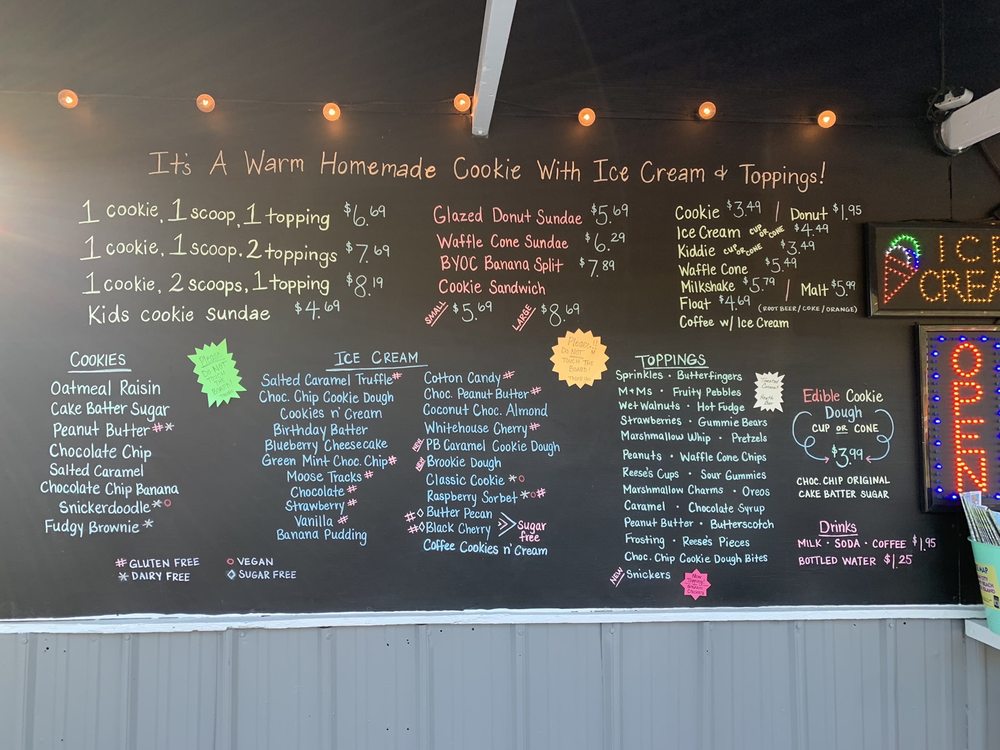 It's A Warm Homemade Cookie With Ice Cream & Toppings!
1 cookie, 1 scoop, 1 topping $6.69
1 cookie, 1 scoop, 2 toppings $7.69
1 cookie, 2 scoops, 1 topping $8.19
Kids cookie sundae $4.69
Glazed Donut Sundae $5.69
Waffle Cone Sundae $6.29
BYOC Banana Split $7.89
Cookie Sandwich
SMALL $5.69 LARGE $8.69
Cookie $3.49 / Donut $1.95
Ice Cream CUP OR CONE $4.49
Kiddie CUP OR CONE $3.49
Waffle Cone $5.49
Milkshake $5.79 / Malt $5.99
Float $4.69 (ROOT BEER/COKE/ORANGE)
Coffee w/ Ice Cream
ICE
CREA
OPEN
COOKIES
Oatmeal Raisin
Cake Batter Sugar
Peanut Butter #*
Chocolate Chip
Salted Caramel
Chocolate Chip Banana
Snickerdoodle *○
Fudgy Brownie *
# GLUTEN FREE ○ VEGAN
* DAIRY FREE ◇ SUGAR FREE
Please
DO NOT
ICE CREAM
Salted Caramel Truffle #
Choc. Chip Cookie Dough
Cookies n' Cream
Birthday Batter
Blueberry Cheesecake
Green Mint Choc. Chip #
Moose Tracks #
Chocolate #
Strawberry #
Vanilla #
Banana Pudding
Cotton Candy #
Choc. Peanut Butter #
Coconut Choc. Almond
Whitehouse Cherry #
NEW PB Caramel Cookie Dough
NEW Brookie Dough
Classic Cookie *○
Raspberry Sorbet *○#
#◇ Butter Pecan
#◇ Black Cherry
Sugar free
Coffee Cookies n' Cream
Please
DO NOT
TOUCH THE
BOARD!
TOPPINGS
Sprinkles • Butterfingers
M+Ms • Fruity Pebbles
Wet Walnuts • Hot Fudge
Strawberries • Gummie Bears
Marshmallow Whip • Pretzels
Peanuts • Waffle Cone Chips
Reese's Cups • Sour Gummies
Marshmallow Charms • Oreos
Caramel • Chocolate Syrup
Peanut Butter • Butterscotch
Frosting • Reese's Pieces
Choc. Chip Cookie Dough Bites
NEW Snickers
Edible Cookie
Dough
CUP OR CONE
$3.99
CHOC. CHIP ORIGINAL
CAKE BATTER SUGAR
Drinks
MILK • SODA • COFFEE $1.95
BOTTLED WATER $1.25